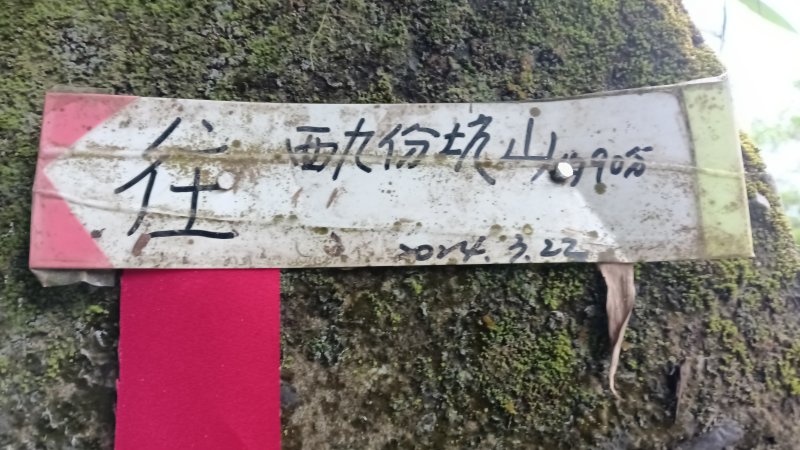 往 西九份坑山約90分
2024.3.22